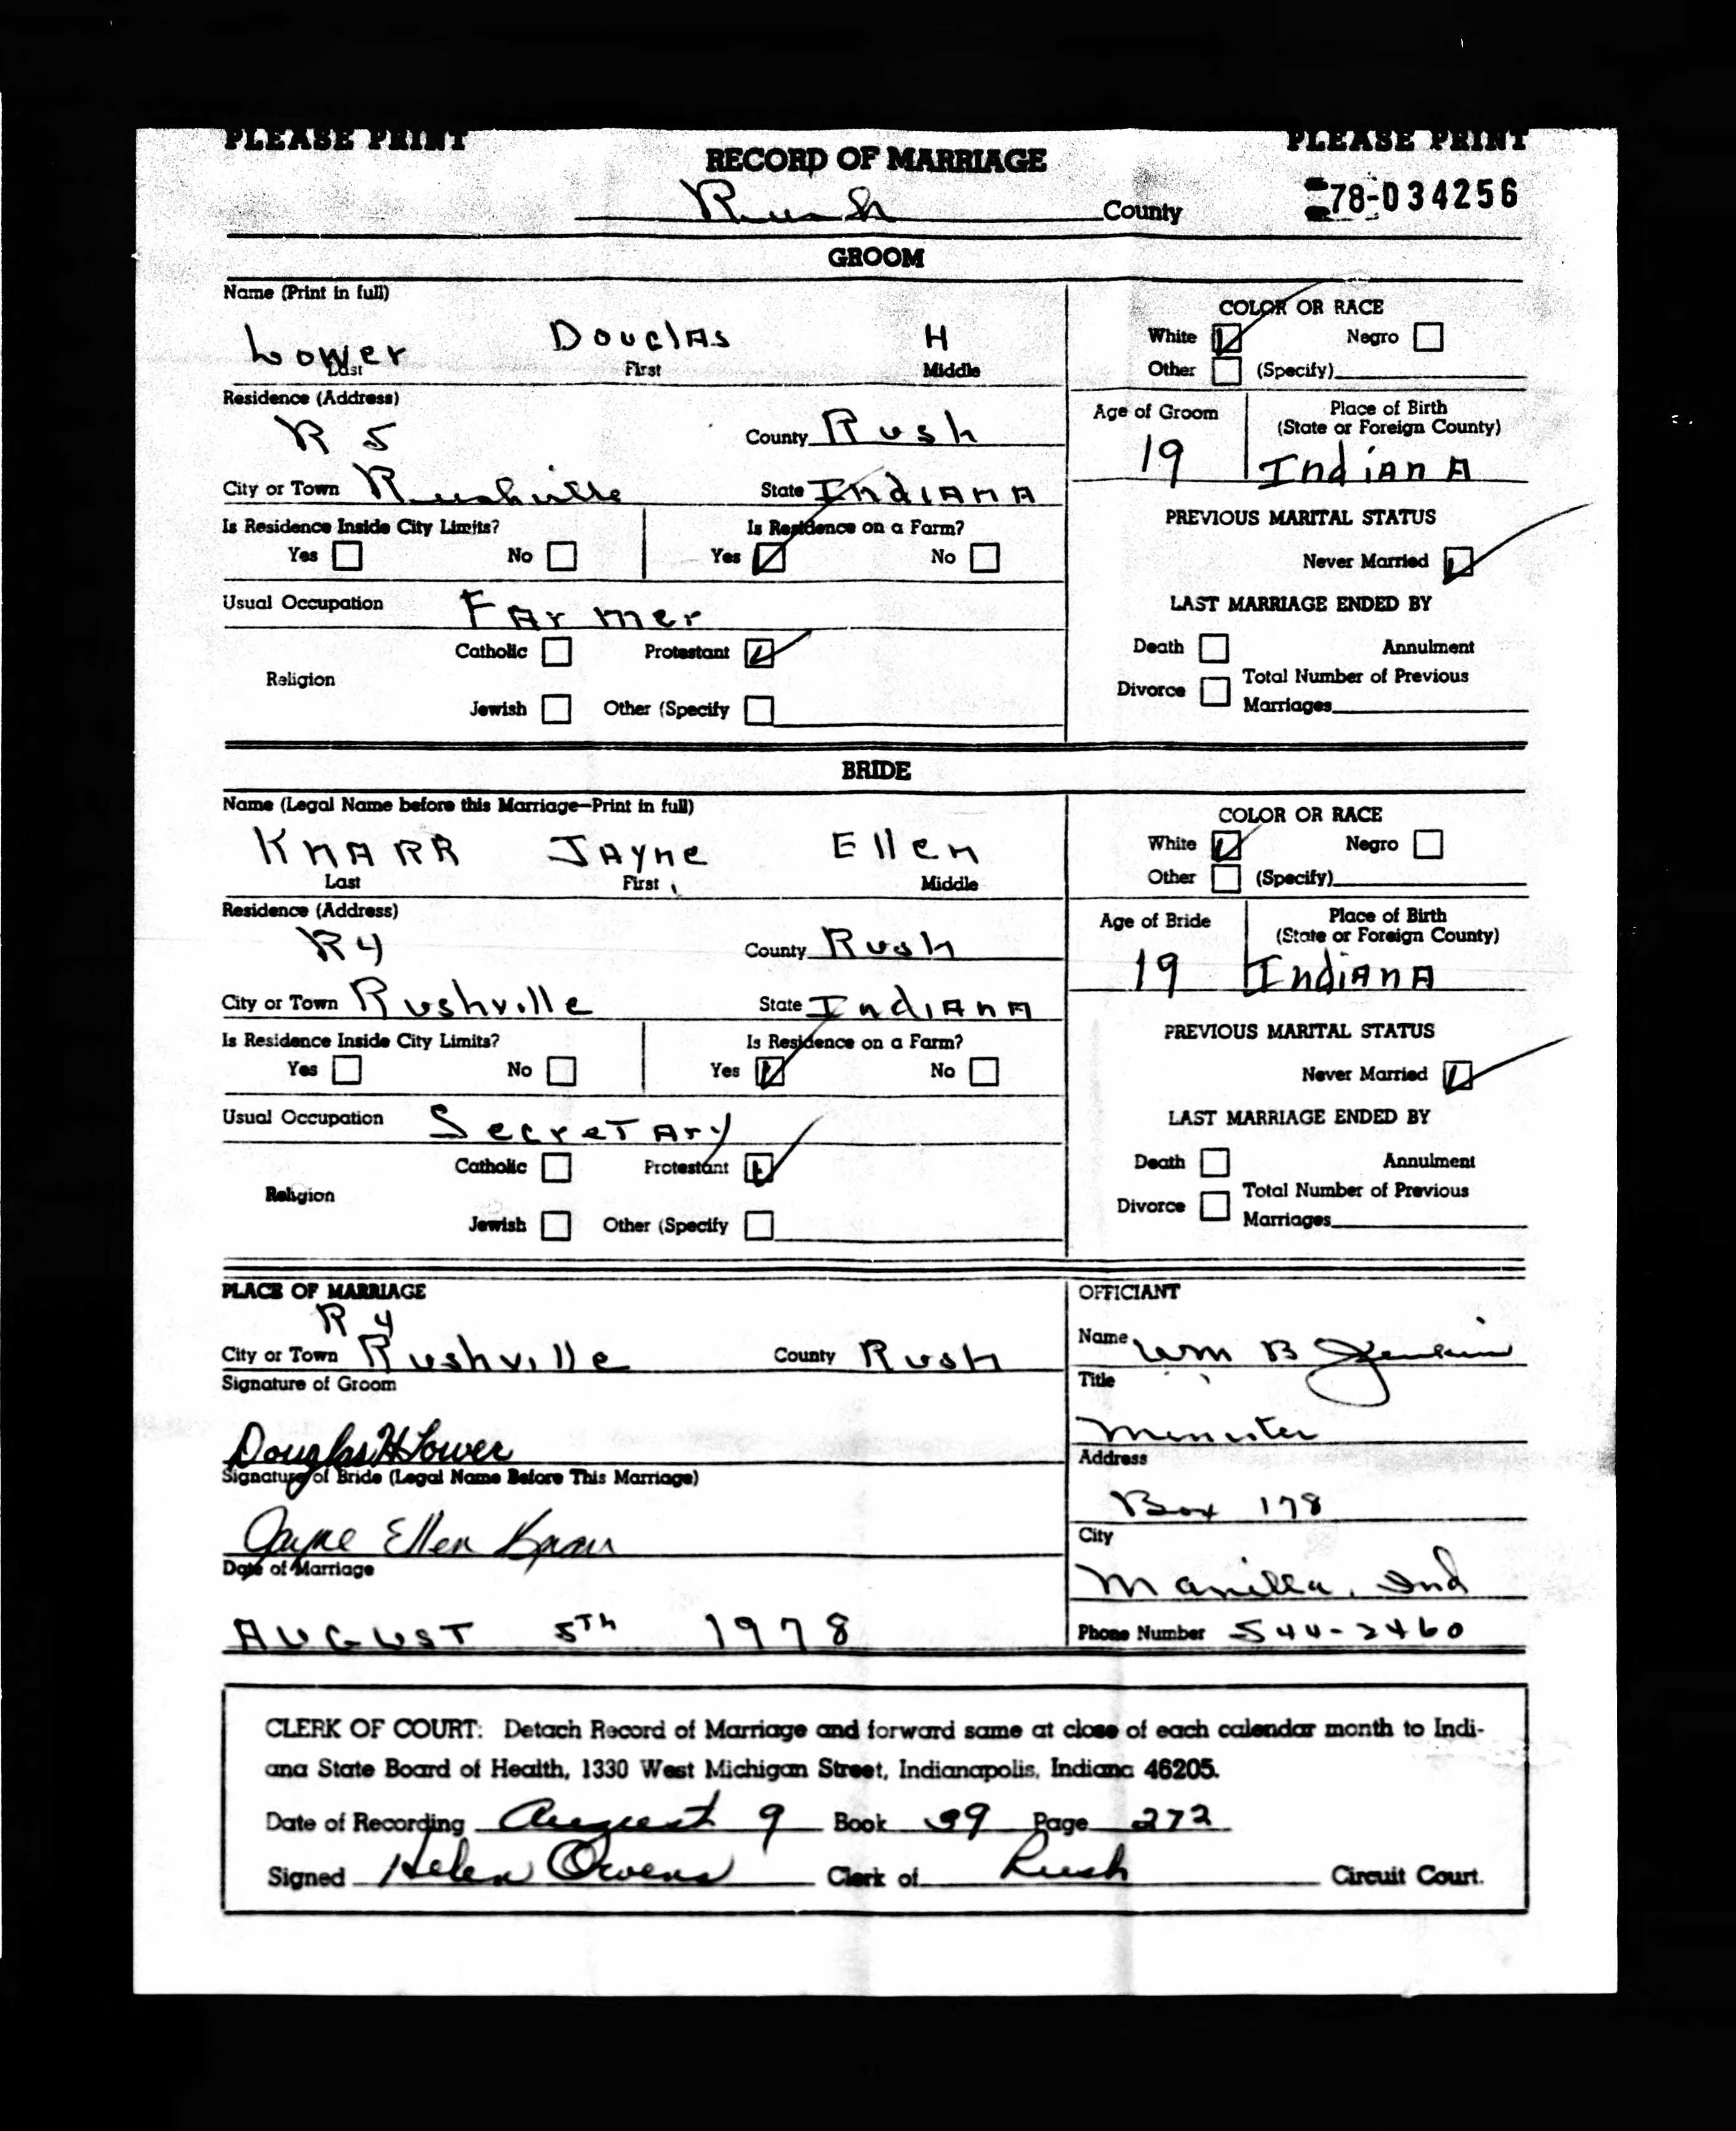 PLEASE PRINT PLEASE PRINT
RECORD OF MARRIAGE
Rush County 78-034256
GROOM
Name (Print in full)
Lower Douglas H
Last First Middle
COLOR OR RACE
White Negro
Other (Specify)
Residence (Address)
R 5 County Rush
Age of Groom Place of Birth
(State or Foreign County)
19 Indiana
City or Town Rushville State Indiana
Is Residence Inside City Limits? Is Residence on a Farm?
Yes No Yes No
PREVIOUS MARITAL STATUS
Never Married
Usual Occupation Farmer
LAST MARRIAGE ENDED BY
Catholic Protestant
Religion
Jewish Other (Specify
Death Annulment
Divorce Total Number of Previous
Marriages
BRIDE
Name (Legal Name before this Marriage-Print in full)
KNARR Jayne Ellen
Last First Middle
COLOR OR RACE
White Negro
Other (Specify)
Residence (Address)
R4 County Rush
Age of Bride Place of Birth
(State or Foreign County)
19 Indiana
City or Town Rushville State Indiana
Is Residence Inside City Limits? Is Residence on a Farm?
Yes No Yes No
PREVIOUS MARITAL STATUS
Never Married
Usual Occupation Secretary
LAST MARRIAGE ENDED BY
Catholic Protestant
Religion
Jewish Other (Specify
Death Annulment
Divorce Total Number of Previous
Marriages
PLACE OF MARRIAGE
R 4
City or Town Rushville County Rush
Signature of Groom
Douglas H Lower
Signature of Bride (Legal Name Before This Marriage)
Jayne Ellen Knarr
Date of Marriage
AUGUST 5Th 1978
OFFICIANT
Name Wm B
Title
Minister
Address
Box 178
City
Manilla, Ind
Phone Number 544-2460
CLERK OF COURT: Detach Record of Marriage and forward same at close of each calendar month to Indi-
ana State Board of Health, 1330 West Michigan Street, Indianapolis, Indiana 46205.
Date of Recording August 9 Book 39 Page 272
Signed Helen Owens Clerk of Rush Circuit Court.